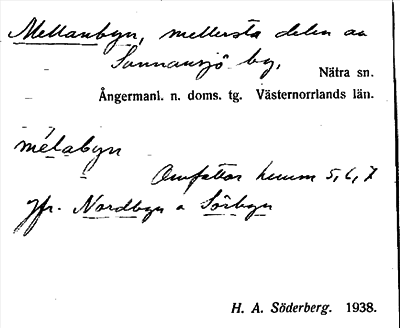 Mellanbyn, mellersta delen av
Sunnansjö by,
Nätra sn.
Ångermanl. n. doms. tg. Västernorrlands län.
mélabyn
Omfattar hemm 5, 6, 7
jfr. Nordbyn o Sörbyn
H. A. Söderberg. 1938.